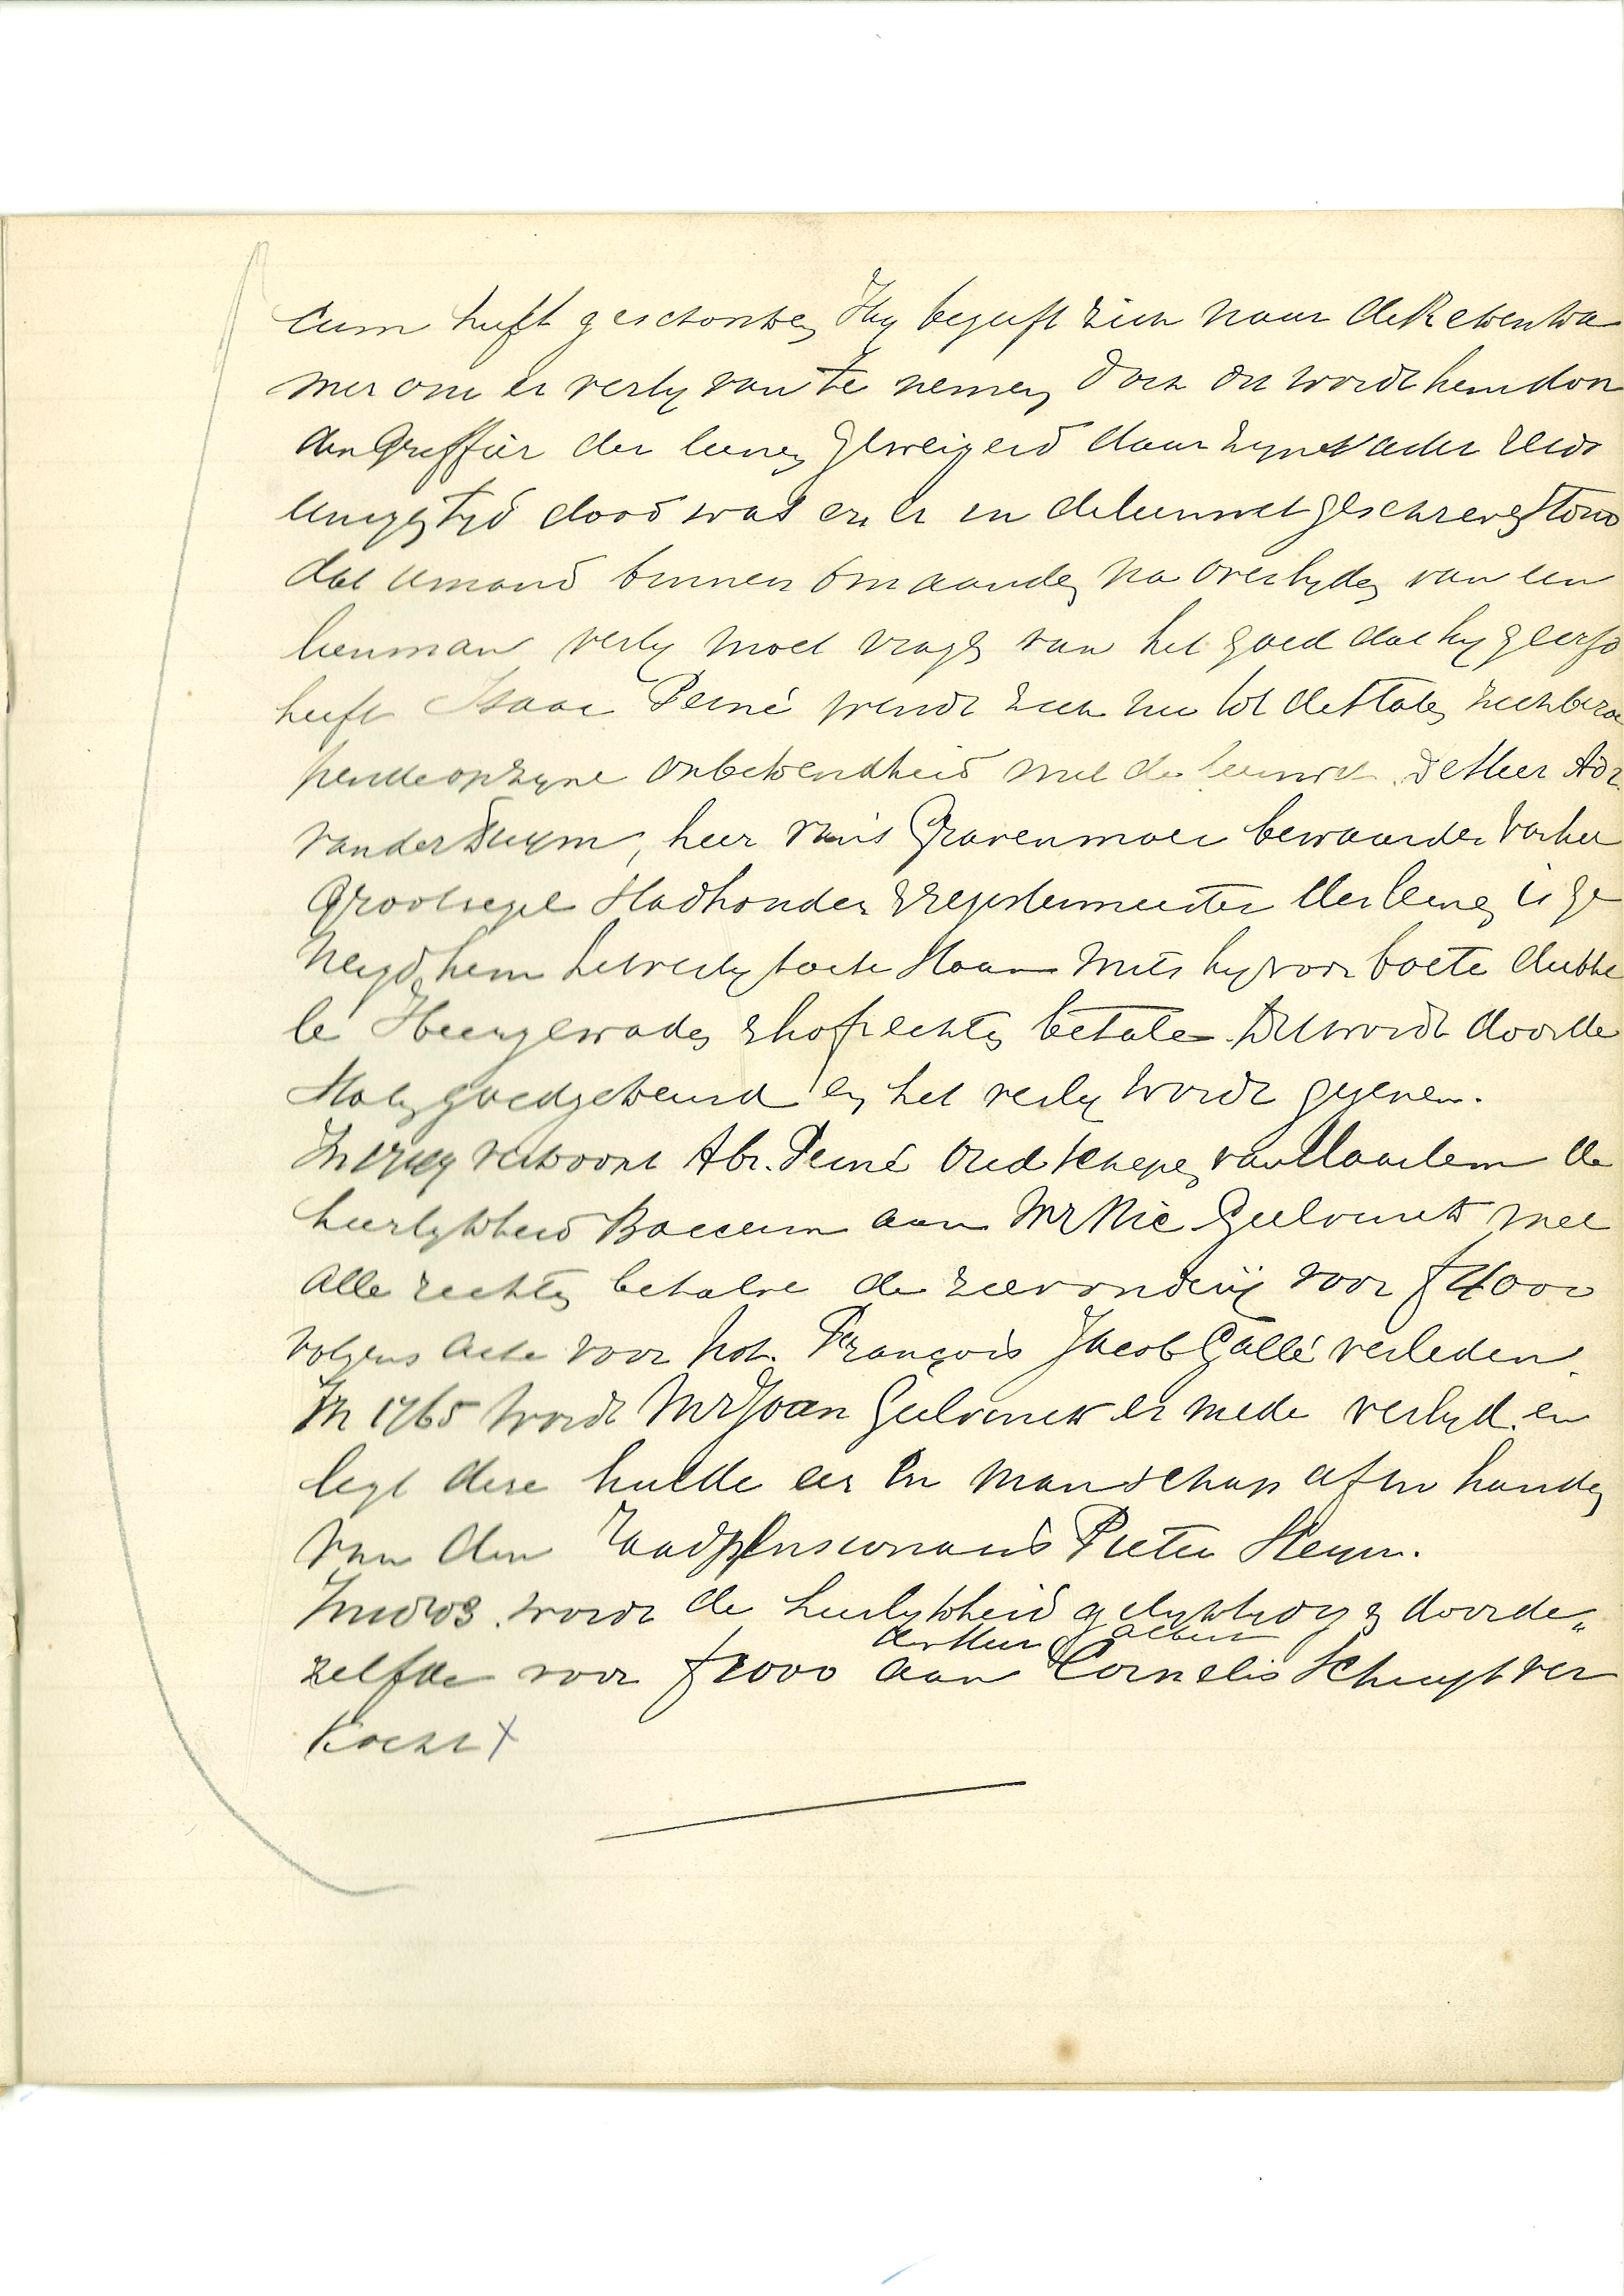 cum heeft geschonken Hy begeeft zich naar de Rekenka
mer om er verly van te nemen, doch dit wordt hem door
den Greffier der leenen geweigerd daar zyne vader reeds
eenigen tyd dood was en er in de leenwet geschreven stond
dat iemand binnen 6 maanden na overlyden van een
leenman verly moet vragen van het goed dat hy geerfd
heeft Isaac Perné wendt zich nu tot de Staten zich beroe
pende op zyne onbekendheid met de leenwet. De Heer Adr.
van der Duym, heer van 's Gravenmoer bewaarder van het
Grootzegel Stadhouder & registermeester der leenen is ge
neigd hem het verly toe te staan mits hy voor boete dubbe
le Heergewaden & hofrechten betale. Dit wordt door de
Staten goedgekeurd en het verly wordt gegeven.
In verkoopt Abr. Perné Oud schepen van Haarlem de
heerlykheid Baccum aan Mr Nic Geelvinck met
alle rechten behalve de zeevonderij voor f 4000
volgens acte voor Not. François Jacob Gallé verleden.
In 1765 wordt Mr Joan Geelvinck er mede verlyd. en
legt deze hulde eer en manschap af in handen
van den raadpensionaris Pieter Steyn.
In wordt de heerlykheid gelyktydig door de„
den Heer Albert
zelfde voor f 2000 aan Cornelis Schuyt ver
kocht X